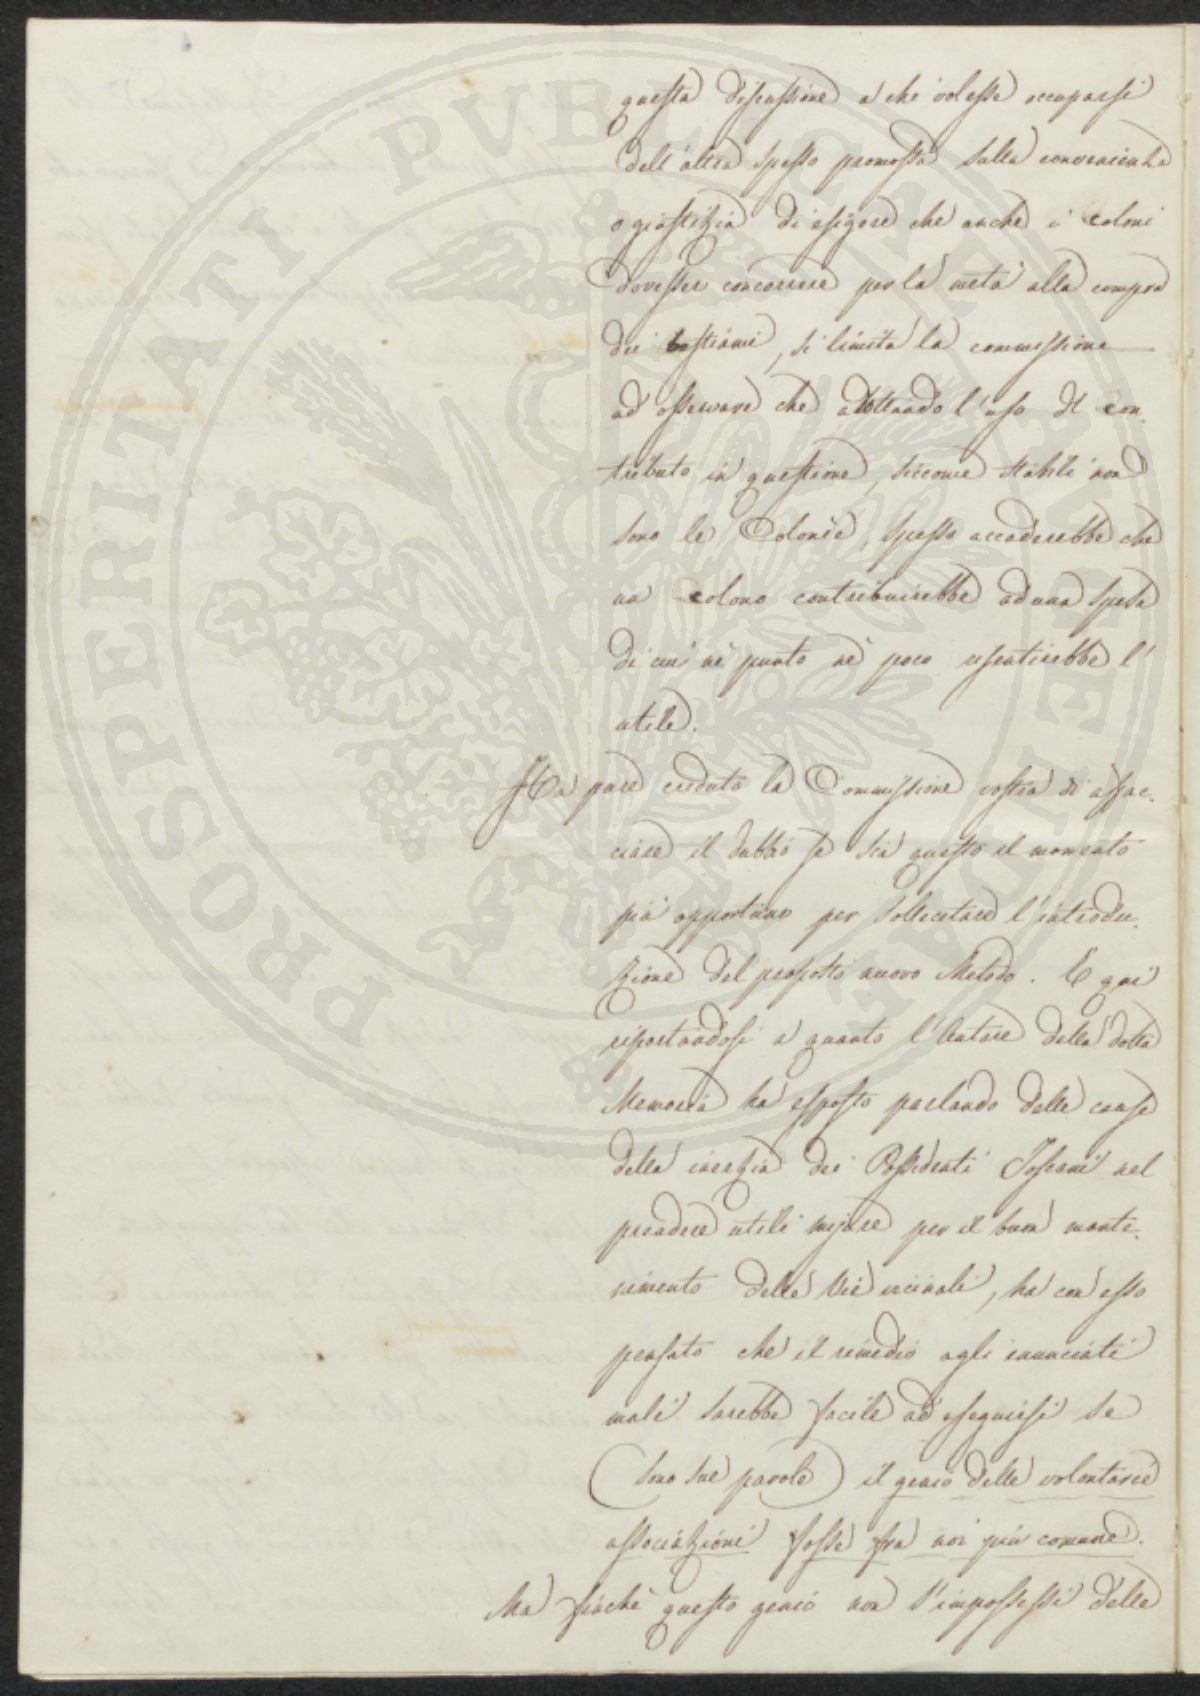 questa discussione a chi volesse occuparsi
dell'altra spesso promossa sulla convenienza
o giustizia di esigere che anche i Coloni
dovesser concorrere per la metà alla compra
dei bestiami, si limita la commissione
ad osservare che adottando l'uso del con-
tributo in questione, siccome stabili non
sono le Colonie, spesso accaderebbe che
un Colono contribuirebbe ad una spesa
di cui nè punto nè poco risentirebbe l'
utile.
Ha pure creduto la Commissione vostra di affac-
ciare il dubbio se sia questo il momento
più opportuno per sollecitare l'introdu-
zione del proposto nuovo Metodo. E qui
riportandosi a quanto l'Autore della dotta
Memoria ha esposto parlando delle cause
della inerzia dei Possidenti Toscani nel
prendere utili misure per il buon mante-
nimento delle Vie vicinali, ha con esso
pensato che il rimedio agli enunciati
mali sarebbe facile ad eseguirsi se
(sono sue parole) il genio delle volontarie
associazioni fosse fra noi più comune.
Ma finchè questo genio non s'impossessi delle
PROSPERITATI PVBLICAE AVGENDAE